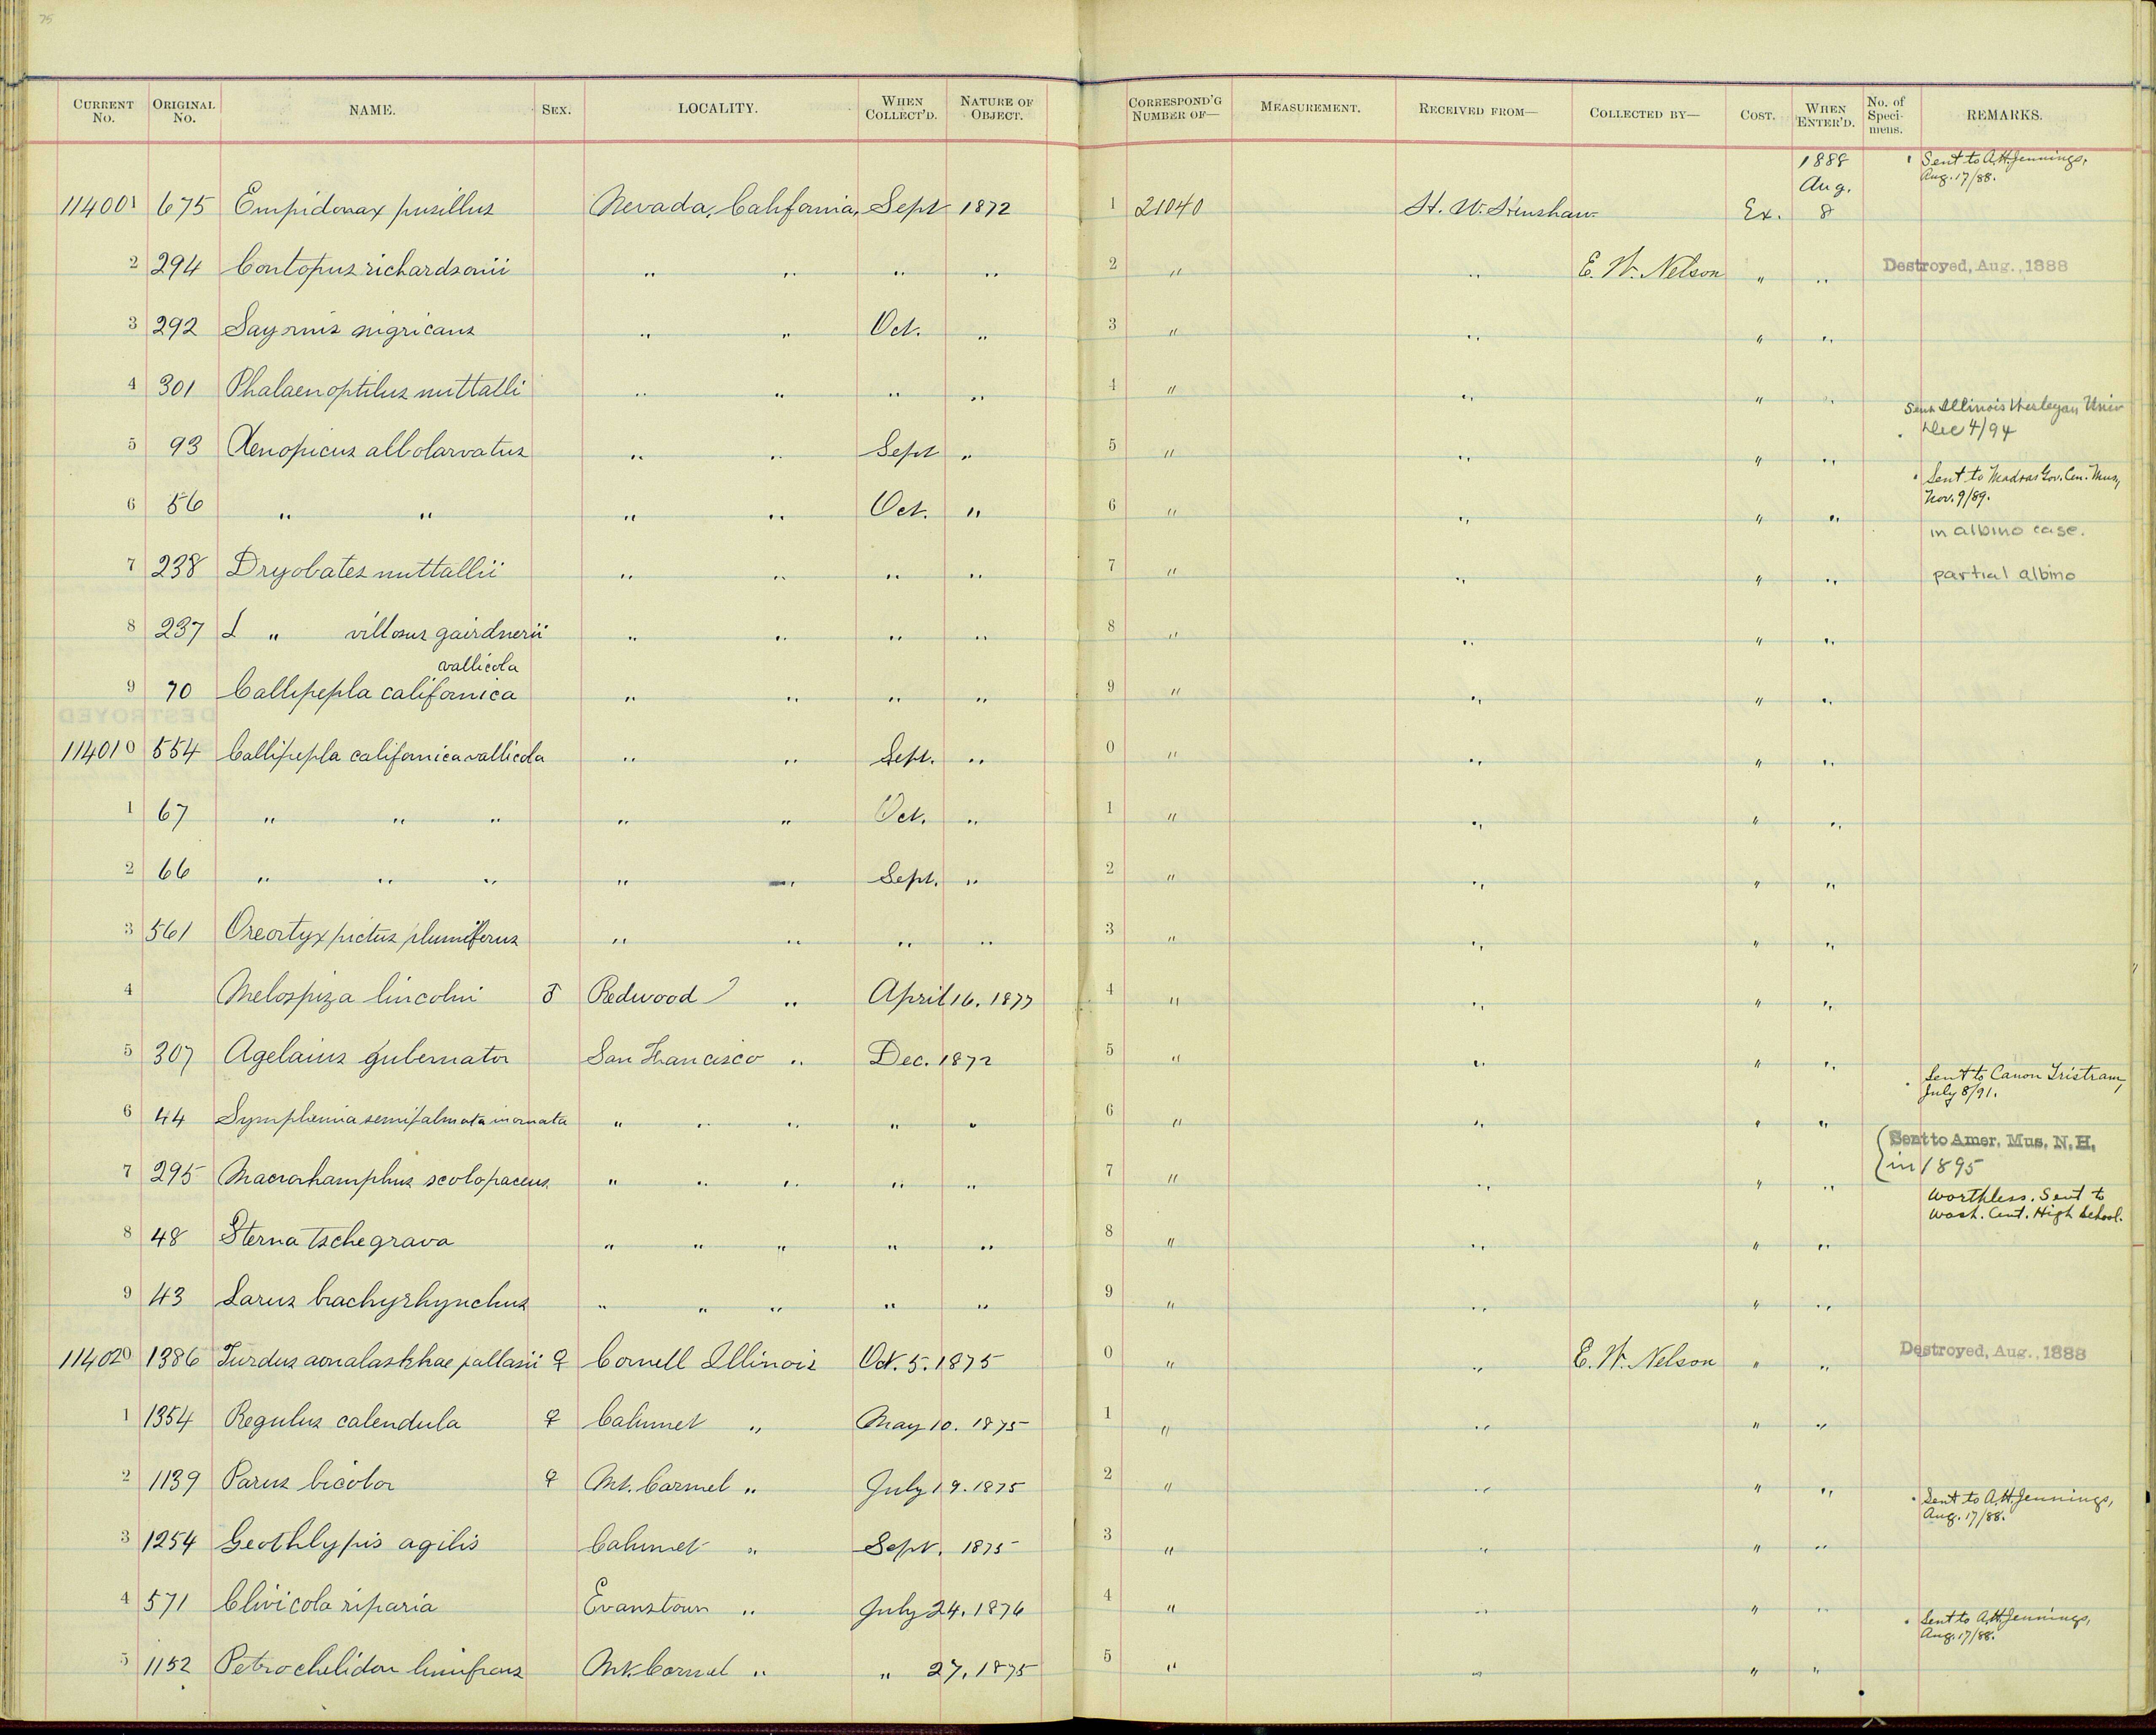 75
CURRENT No. ORIGINAL No. NAME. SEX. LOCALITY. WHEN COLLECT'D. NATURE OF OBJECT. CORRESPOND'G NUMBER OF— MEASUREMENT. RECEIVED FROM— COLLECTED BY— COST. WHEN ENTER'D. No. of Speci-mens. REMARKS.
1888 Sent to A.H. Jennings,
Aug. Aug. 17/88.
114001 675 Empidonax pusillus Nevada, California, Sept 1872 1 21040 H. W. Henshaw Ex. 8
2 294 Contopus richardsonii " " " " 2 " " E. W. Nelson " " Destroyed, Aug., 1888
3 292 Sayornis nigricans " " Oct. " 3 " " " "
4 301 Phalaenoptilus nuttalli " " " " 4 " " " "
Sent Illinois Wesleyan Univ
Dec 4/94
5 93 Xenopicus albolarvatus " " Sept " 5 " " " "
Sent to Madras Gov. Cen. Mus,
Nov. 9/89.
6 56 " " " " Oct. " 6 " " " "
in albino case.
7 238 Dryobates nuttallii " " " " 7 " " " " partial albino
8 237 " villosus gairdnerii " " " " 8 " " " "
vallicola
9 70 Callipepla californica " " " " 9 " " " "
DESTROYED
114010 554 Callipepla californica vallicola " " Sept. " 0 " " " "
1 67 " " " " " Oct. " 1 " " " "
2 66 " " " " " Sept. " 2 " " " "
3 561 Oreortyx pictus plumiferus " " " " 3 " " " "
4 Melospiza lincolni ♂ Redwood ? " April 16. 1877 4 " " " "
5 307 Agelaius gubernator San Francisco " Dec. 1872 5 " " " "
Sent to Canon Tristram,
July 8/91.
6 44 Symphemia semipalmata inornata " " " " " 6 " " " "
Sent to Amer. Mus. N. H.
in 1895
7 295 Macrorhamphus scolopaceus " " " " " 7 " " " "
Worthless. Sent to
Wash. Cent. High School.
8 48 Sterna tschegrava " " " " " 8 " " " "
9 43 Larus brachyrhynchus " " " " " 9 " " " "
114020 1386 Turdus aonalaskhae pallasii ♀ Cornell Illinois Oct. 5. 1875 0 " " E. W. Nelson " " Destroyed, Aug., 1888
1 1354 Regulus calendula ♀ Calumet " May 10. 1875 1 " " " "
2 1139 Parus bicolor ♀ Mt. Carmel " July 19. 1875 2 " " " "
Sent to A.H. Jennings,
Aug. 17/88.
3 1254 Geothlypis agilis Calumet " Sept. 1875 3 " " " "
4 571 Clivicola riparia Evanstown " July 24. 1876 4 " " " "
Sent to A.H. Jennings,
Aug. 17/88.
5 1152 Petrochelidon lunifrons Mt. Carmel " " 27, 1875 5 " " " "